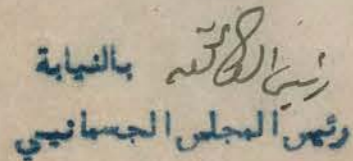 رئيس اللائقه بالنيابة
رئيس المجلس الجسمانيي